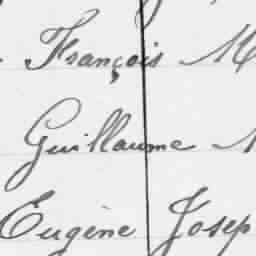 François M
Guillaume
Eugène Josep